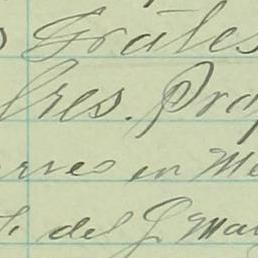 Grales
lres. Prop
rres en Me
del J. May